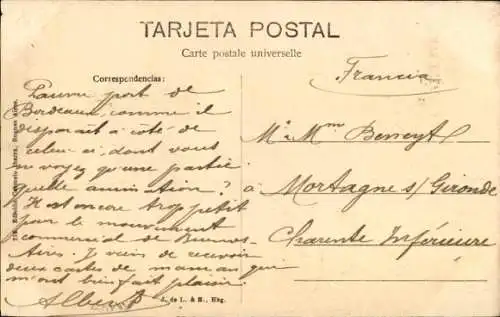 TARJETA POSTAL
Carte postale universelle
Correspondencias:
Pauvre port de
Bordeaux, comme il
disparait à côté de
celui-ci, dont vous
ne voyez qu'une partie
quelle animation?
Il est encore trop petit
pour le mouvement
commercial de Buenos-
Aires. Je viens de recevoir
deux cartes de maman qui
m'ont bien fait plaisir.
Albert
Francia
Mr & Mme Berreyt
à Mortagne s/ Gironde
Charente Inférieure
A. de L. & H., Hbg.